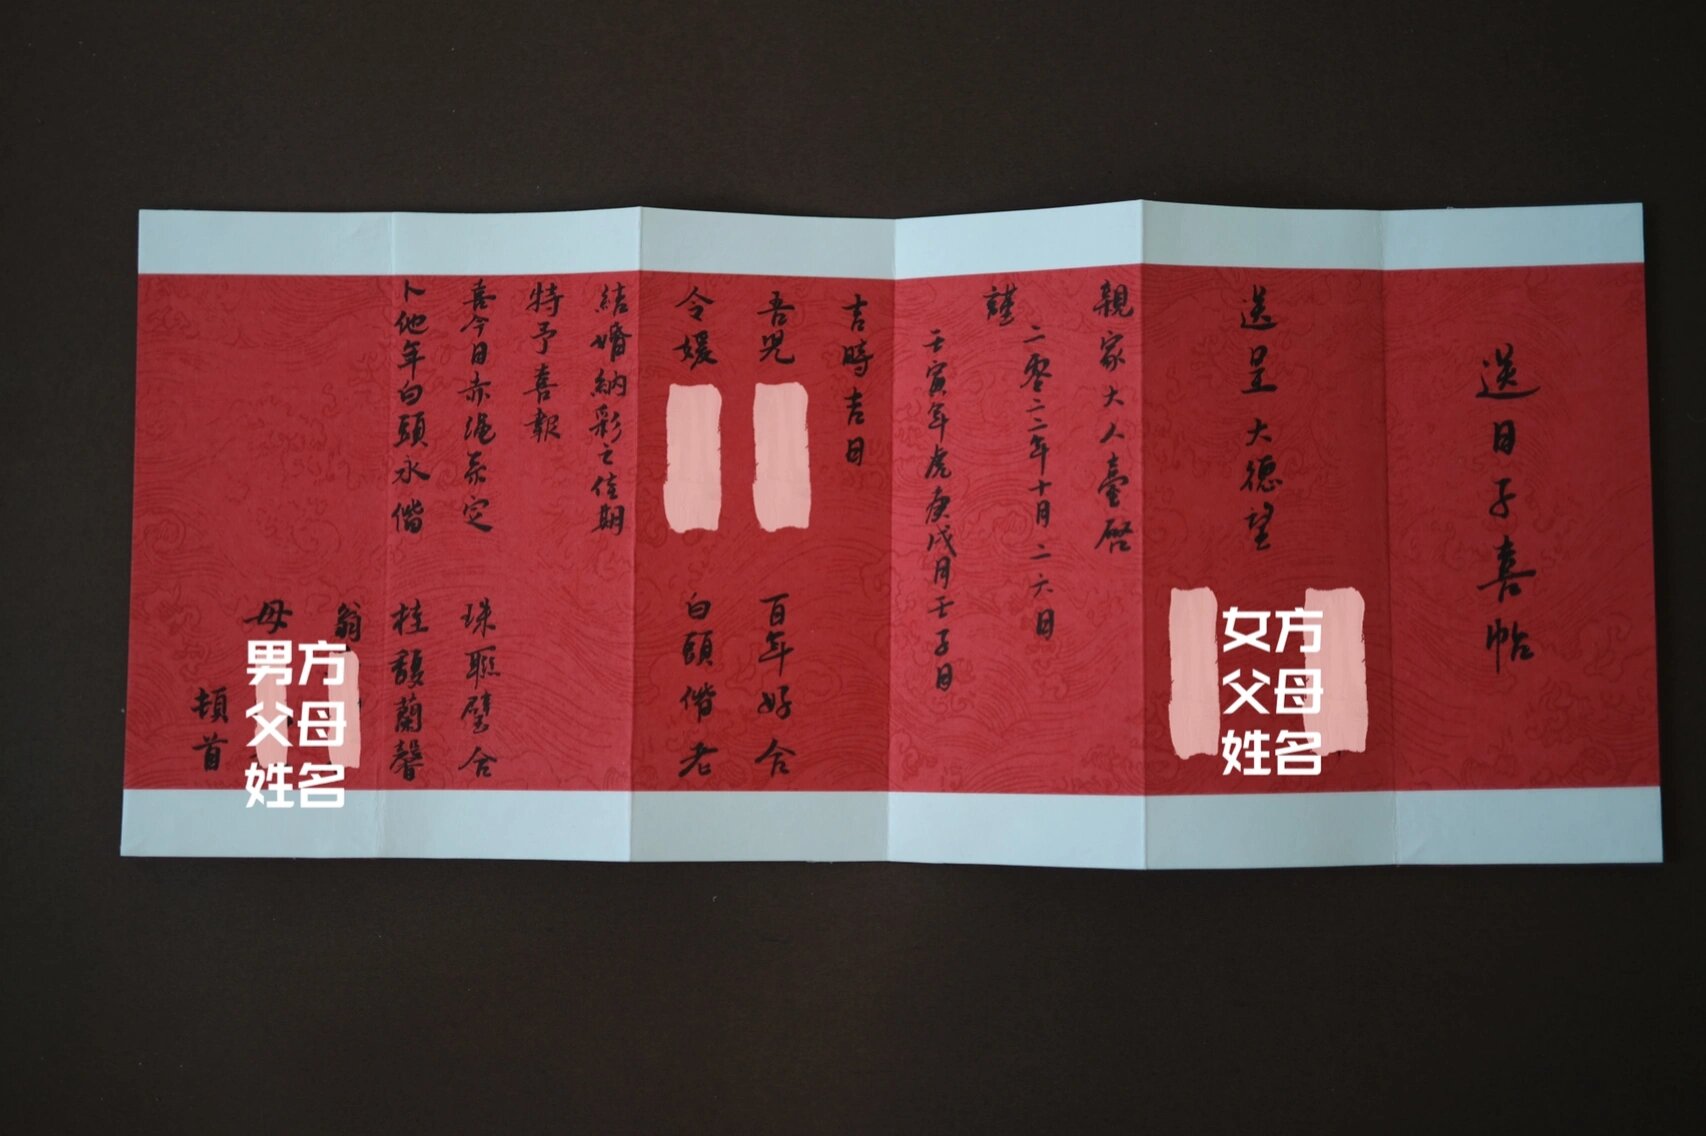 送日子喜帖
送呈大德望
女方
父母
姓名
親家大人臺啓
謹
二零二二年十月二六日
壬寅年虎庚戌月壬子日
吉時吉日
吾児 百年好合
令媛 白頭偕老
結婚納彩之佳期
特予喜報
喜今日赤绳系定 珠聯璧合
卜他年白頭永偕 桂馥蘭馨
翁
母
男方
父母
姓名
頓首